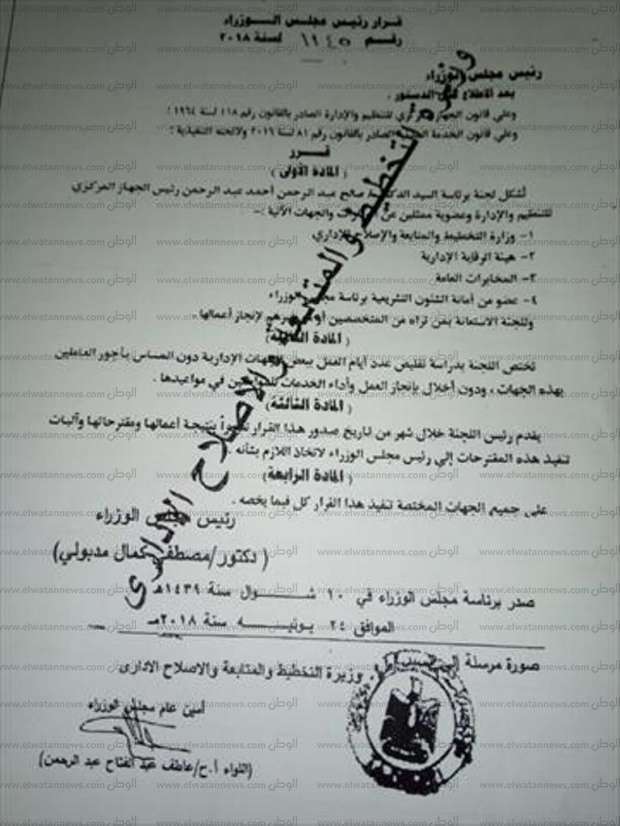 قرار رئيس مجلس الوزراء
رقم ١١٤٥ لسنة ٢٠١٨
رئيس مجلس الوزراء
بعد الاطلاع على الدستور ،
وعلى قانون الجهاز المركزي للتنظيم والإدارة الصادر بالقانون رقم ١١٨ لسنة ١٩٦٤ ؛
وعلى قانون الخدمة المدنية الصادر بالقانون رقم ٨١ لسنة ٢٠١٦ ولائحته التنفيذية ؛
قـــرر
(المادة الأولى)
تشكل لجنة برئاسة السيد الدكتور صالح عبد الرحمن أحمد عبد الرحمن رئيس الجهاز المركزي
للتنظيم والإدارة وعضوية ممثلين عن الوزارات والجهات الآتية :-
١- وزارة التخطيط والمتابعة والإصلاح الإداري
٢- هيئة الرقابة الإدارية
٣- المخابرات العامة
٤- عضو من أمانة الشئون التشريعية برئاسة مجلس الوزراء
وللجنة الاستعانة بمن تراه من المتخصصين أو غيرهم لإنجاز أعمالها.
(المادة الثانية)
تختص اللجنة بدراسة تقليص عدد أيام العمل ببعض الجهات الإدارية دون المساس بأجور العاملين
بهذه الجهات ، ودون أخلال بإنجاز العمل وأداء الخدمات للمواطنين في مواعيدها .
(المادة الثالثة)
يقدم رئيس اللجنة خلال شهر من تاريخ صدور هذا القرار تقريراً بنتيجة أعمالها ومقترحاتها وآليات
تنفيذ هذه المقترحات إلى رئيس مجلس الوزراء لاتخاذ اللازم بشأنه .
(المادة الرابعة)
على جميع الجهات المختصة تنفيذ هذا القرار كل فيما يخصه .
رئيس مجلس الوزراء
( دكتور/مصطفى كمال مدبولي)
صدر برئاسة مجلس الوزراء في ١٠ شـــوال سنة ١٤٣٩هـ
الموافق ٢٤ يونيـــه سنة ٢٠١٨مـ
صورة مرسلة إلى السيدة وزيرة التخطيط والمتابعة والاصلاح الادارى
أمين عام مجلس الوزراء
(اللواء أ.ح/عاطف عبد الفتاح عبد الرحمن)
وزارة التخطيط والمتابعة والاصلاح الإدارى
www.elwatannews.com الوطن